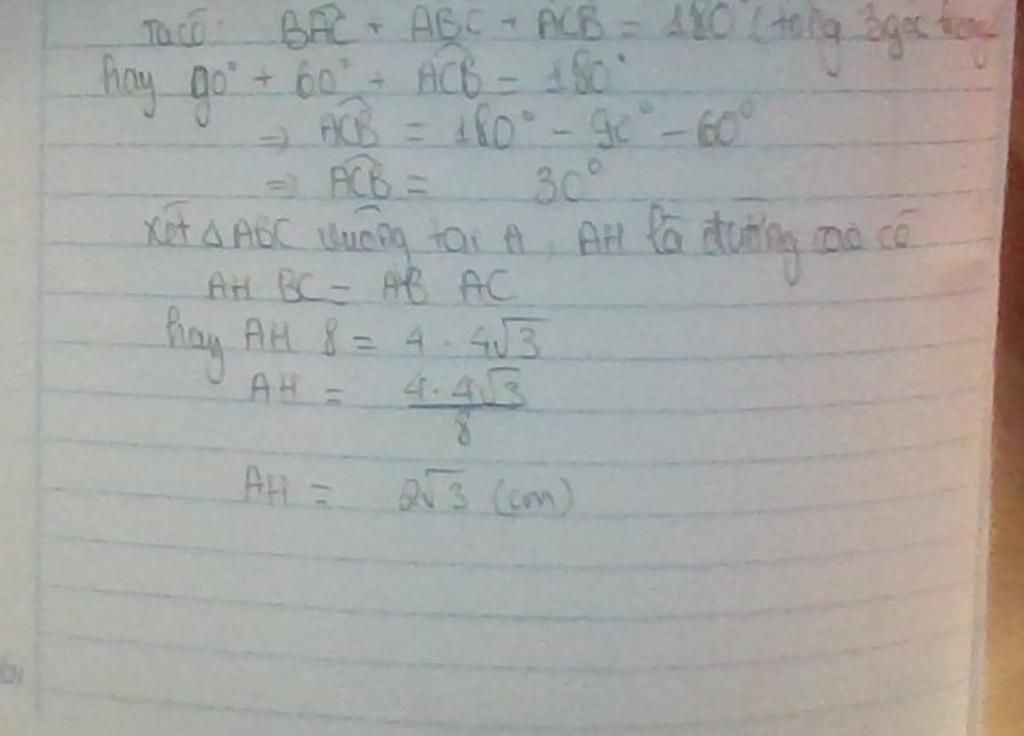 Ta có: BAC + ABC + ACB = 180° (tổng 3 góc trong
hay 90° + 60° + ACB = 180°
=> ACB = 180° - 90° - 60°
=> ACB = 30°
xét △ABC vuông tại A, AH là đường cao có
AH BC = AB AC
hay AH 8 = 4 . 4√3
AH = 4.4√3 / 8
AH = 2√3 (cm)